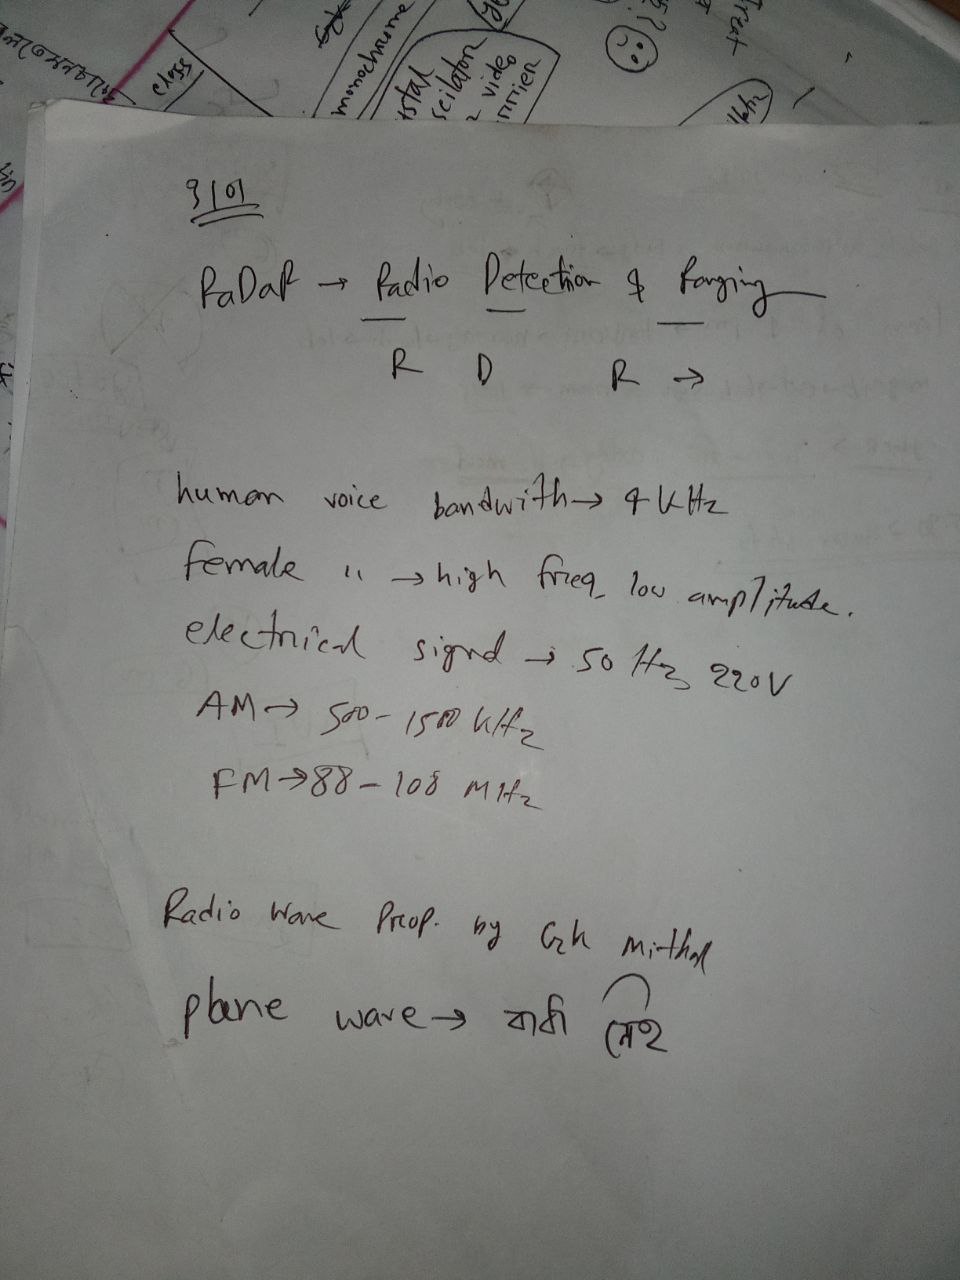 class
monochrome
video
Treat
3101
RaDaR → Radio Detection & Ranging
R D R →
human voice bandwith → 4 KHz
female " → high freq, low amplitude.
electrical signal → 50 Hz, 220V
AM → 500 - 1500 KHz
FM → 88 - 108 MHz
Radio Wave Prop. by Gk Mithal
plane wave → বাকী নেই